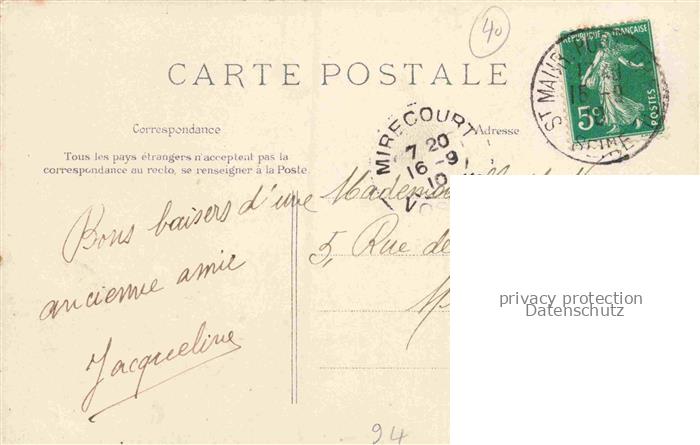 40
CARTE POSTALE
RÉPUBLIQUE FRANÇAISE
POSTES
5c
ST MAUR
15-9
SEINE
MIRECOURT
7 20
16-9
10
Correspondance
Adresse
Tous les pays étrangers n'acceptent pas la
correspondance au recto, se renseigner à la Poste.
Bons baisers d'une
ancienne amie
Jacqueline
5, Rue de
privacy protection
Datenschutz
94